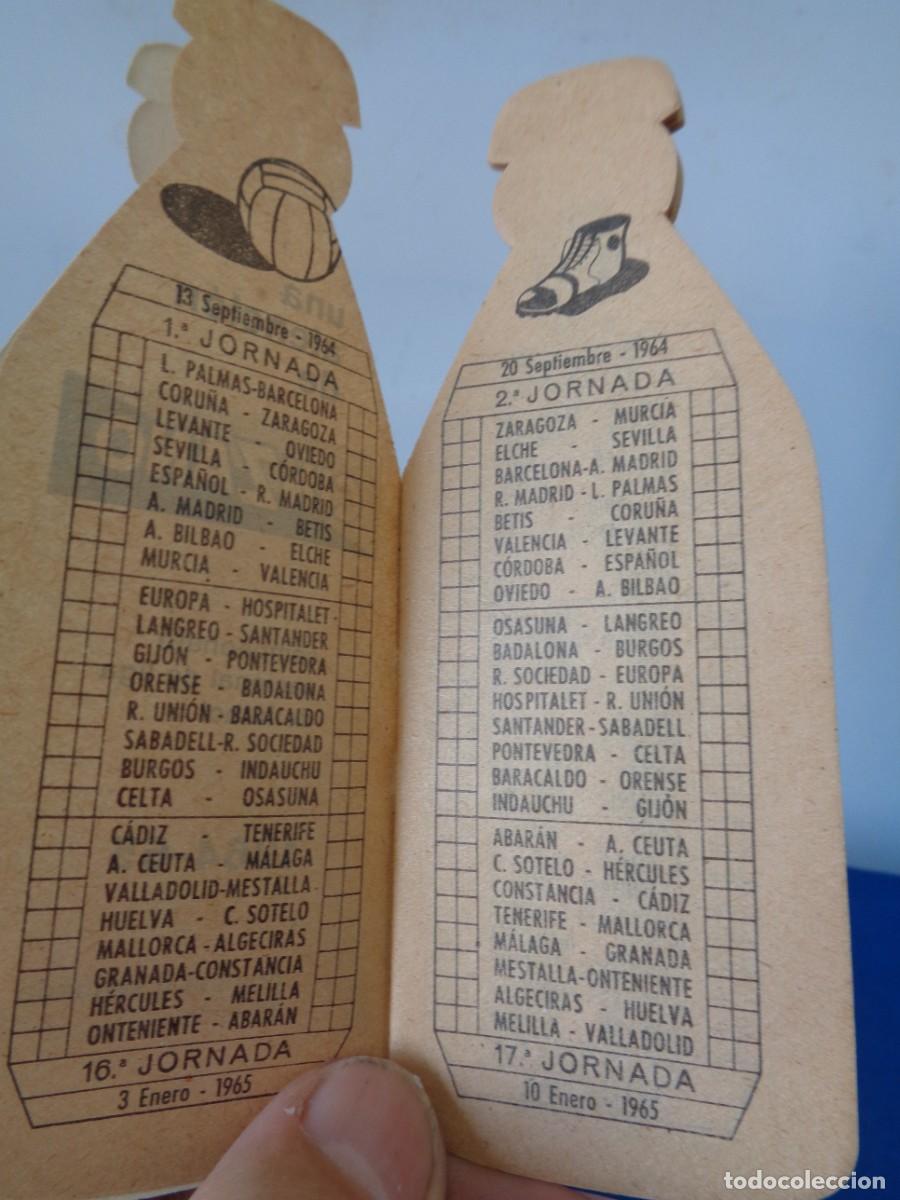 13 Septiembre - 1964
1.ª JORNADA
L. PALMAS-BARCELONA
CORUÑA - ZARAGOZA
LEVANTE - OVIEDO
SEVILLA - CÓRDOBA
ESPAÑOL - R. MADRID
A. MADRID - BETIS
A. BILBAO - ELCHE
MURCIA - VALENCIA
EUROPA - HOSPITALET
LANGREO - SANTANDER
GIJÓN - PONTEVEDRA
ORENSE - BADALONA
R. UNIÓN - BARACALDO
SABADELL-R. SOCIEDAD
BURGOS - INDAUCHU
CELTA - OSASUNA
CÁDIZ - TENERIFE
A. CEUTA - MÁLAGA
VALLADOLID-MESTALLA
HUELVA - C. SOTELO
MALLORCA - ALGECIRAS
GRANADA-CONSTANCIA
HÉRCULES - MELILLA
ONTENIENTE - ABARÁN
16.ª JORNADA
3 Enero - 1965
20 Septiembre - 1964
2.ª JORNADA
ZARAGOZA - MURCIA
ELCHE - SEVILLA
BARCELONA-A. MADRID
R. MADRID - L. PALMAS
BETIS - CORUÑA
VALENCIA - LEVANTE
CÓRDOBA - ESPAÑOL
OVIEDO - A. BILBAO
OSASUNA - LANGREO
BADALONA - BURGOS
R. SOCIEDAD - EUROPA
HOSPITALET - R. UNIÓN
SANTANDER-SABADELL
PONTEVEDRA - CELTA
BARACALDO - ORENSE
INDAUCHU - GIJÓN
ABARÁN - A. CEUTA
C. SOTELO - HÉRCULES
CONSTANCIA - CÁDIZ
TENERIFE - MALLORCA
MÁLAGA - GRANADA
MESTALLA-ONTENIENTE
ALGECIRAS - HUELVA
MELILLA - VALLADOLID
17.ª JORNADA
10 Enero - 1965
todocoleccion